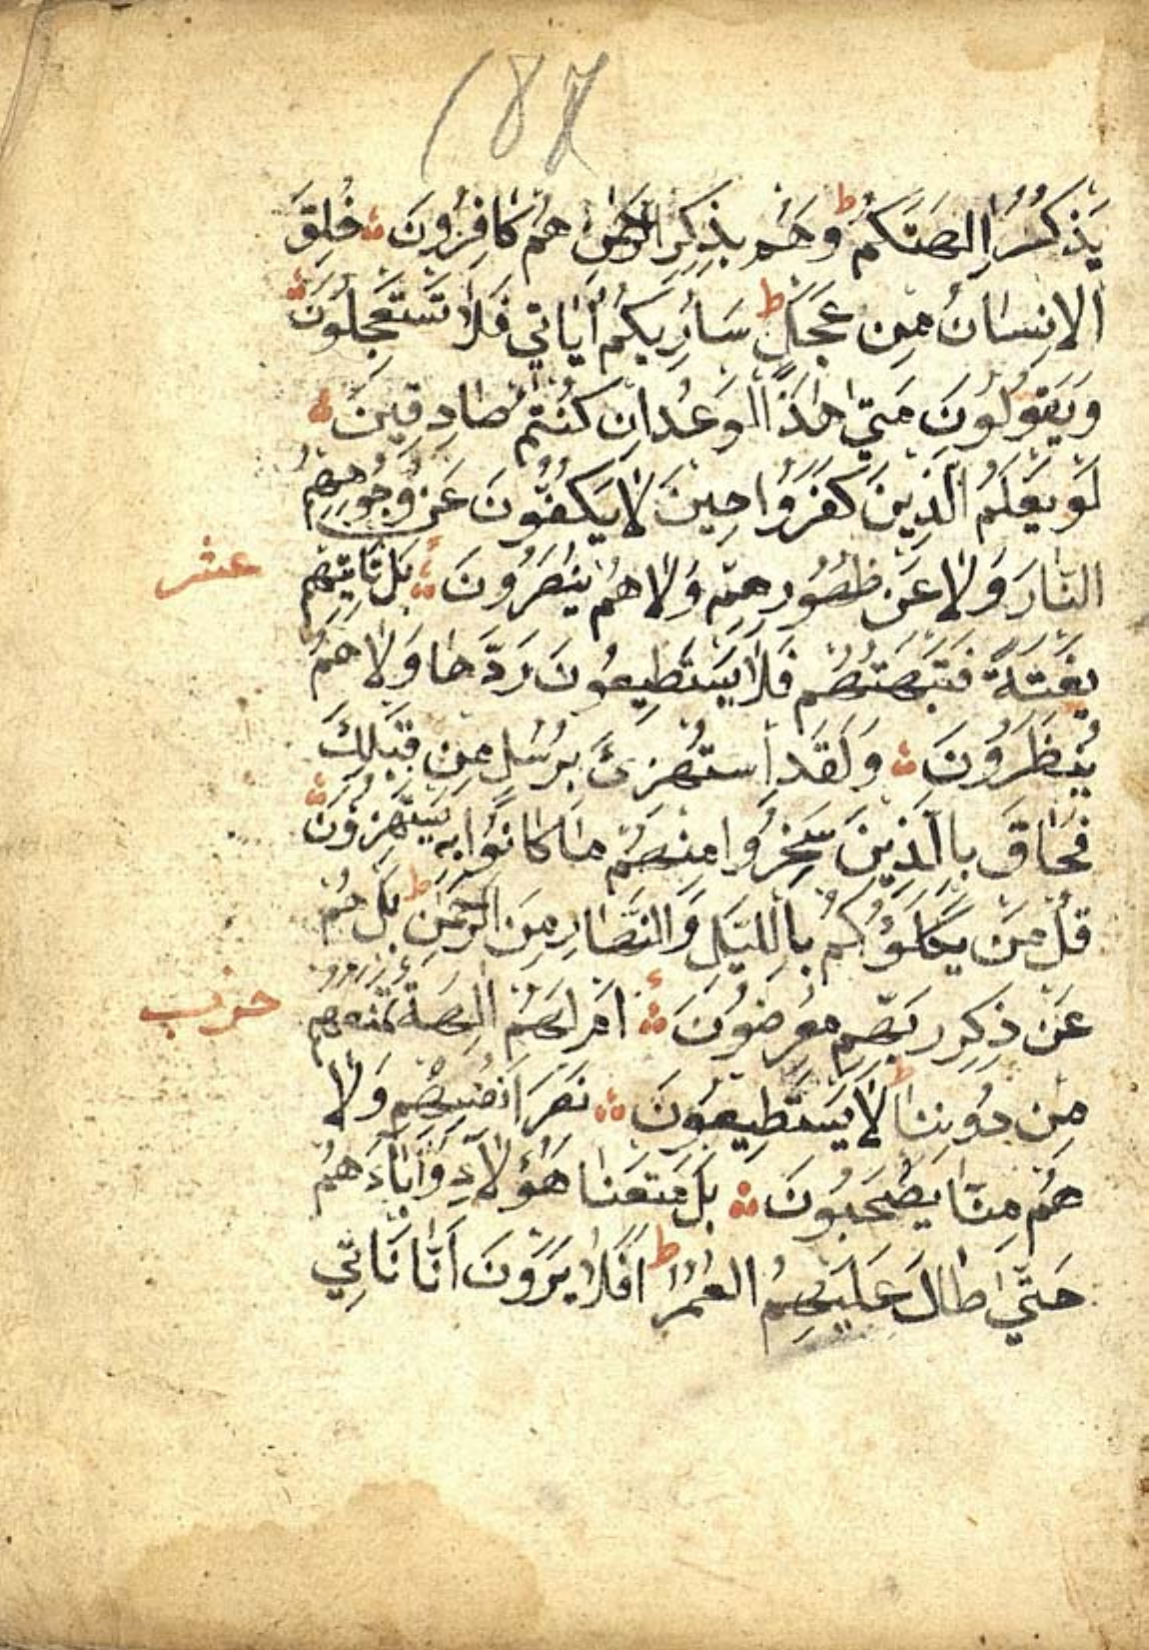 187
يَذْكُرُ اٰلِهَتَكُمْ ط وَهُمْ بِذِكْرِ الرَّحْمٰنِ هُمْ كَافِرُونَ ۞ خُلِقَ
الْاِنْسَانُ مِنْ عَجَلٍ ط سَاُرِيكُمْ اٰيَاتِي فَلَا تَسْتَعْجِلُونَ ۞
وَيَقُولُونَ مَتٰي هٰذَا الْوَعْدُ اِنْ كُنْتُمْ صَادِقِينَ ۞
لَوْ يَعْلَمُ الَّذِينَ كَفَرُوا حِينَ لَا يَكُفُّونَ عَنْ وُجُوهِهِمُ
النَّارَ وَلَا عَنْ ظُهُورِهِمْ وَلَا هُمْ يُنْصَرُونَ ۞ بَلْ تَاْتِيهِمْ
عشر
بَغْتَةً فَتَبْهَتُهُمْ فَلَا يَسْتَطِيعُونَ رَدَّهَا وَلَا هُمْ
يُنْظَرُونَ ۞ وَلَقَدِ اسْتُهْزِئَ بِرُسُلٍ مِنْ قَبْلِكَ
فَحَاقَ بِالَّذِينَ سَخِرُوا مِنْهُمْ مَا كَانُوا بِهِ يَسْتَهْزِؤُنَ ۞
قُلْ مَنْ يَكْلَؤُكُمْ بِاللَّيْلِ وَالنَّهَارِ مِنَ الرَّحْمٰنِ ط بَلْ هُمْ
عَنْ ذِكْرِ رَبِّهِمْ مُعْرِضُونَ ۞ اَمْ لَهُمْ اٰلِهَةٌ تَمْنَعُهُمْ
حزب
مِنْ دُونِنَا ط لَا يَسْتَطِيعُونَ ۞ نَصْرَ اَنْفُسِهِمْ وَلَا
هُمْ مِنَّا يُصْحَبُونَ ۞ بَلْ مَتَّعْنَا هٰؤُلَاءِ وَاٰبَاءَهُمْ
حَتّٰي طَالَ عَلَيْهِمُ الْعُمُرُ ط اَفَلَا يَرَوْنَ اَنَّا نَاْتِي